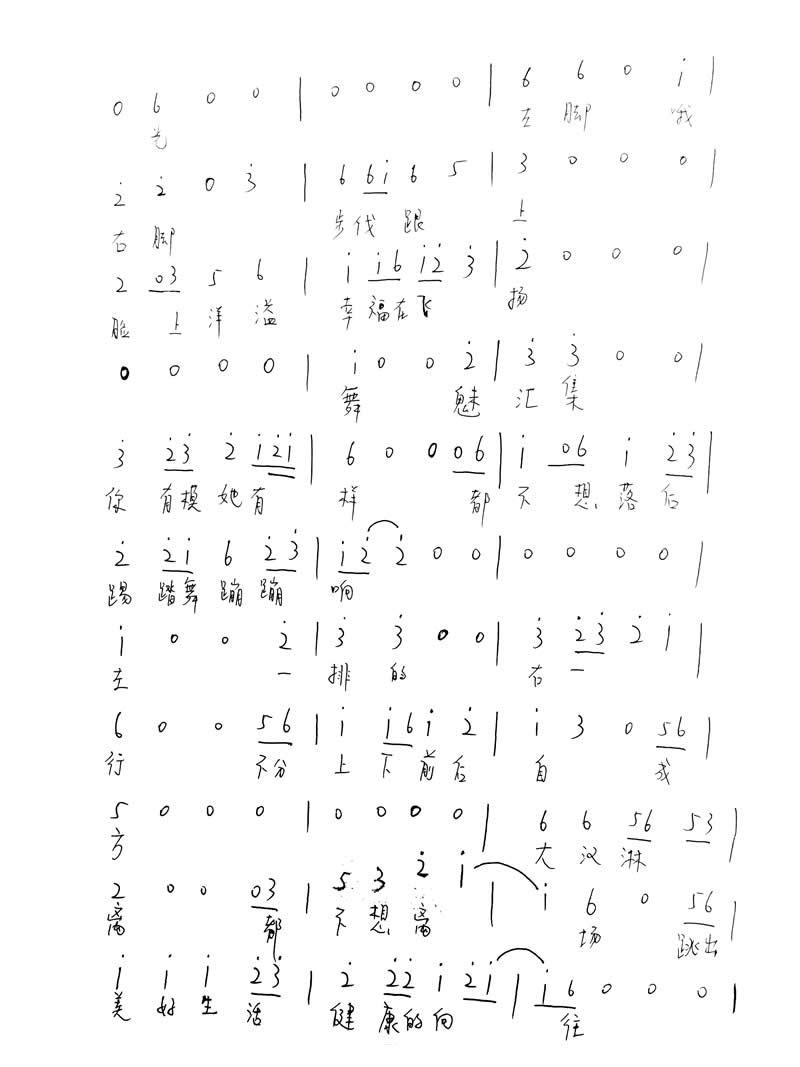 0 6 0 0 | 0 0 0 0 | 6 6 0 i |
光 左 脚 哦
2̇ 2̇ 0 3̇ | 6 6i 6 5 | 3 0 0 0 |
右 脚 步伐 跟 上
2 03 5 6 | i i6 i2̇ 3̇ | 2̇ 0 0 0 |
脸 上 洋 溢 幸 福在飞 扬
0 0 0 0 | i 0 0 2̇ | 3̇ 3̇ 0 0 |
舞 魅 汇 集
3̇ 2̇3̇ 2̇ i2̇i | 6 0 0 06 | i 06 i 2̇3̇ |
你 有模 她 有 样 都 不 想 落 后
2̇ 2̇i 6 2̇3̇ | i2̇ 2̇ 0 0 | 0 0 0 0 |
踢 踏舞 蹦 蹦 响
i 0 0 2̇ | 3̇ 3̇ 0 0 | 3̇ 2̇3̇ 2̇ i |
左 一 排 的 右 一
6 0 0 56 | i i6 i 2̇ | i 3 0 56 |
行 不分 上 下 前 后 自 成
5 0 0 0 | 0 0 0 0 | 6 6 56 53 |
方 大 汉 淋
2 0 0 03 | 5 3 2̇ i | i 6 0 56 |
离 都 不 想 离 场 跳出
i i i 2̇3̇ | 2̇ 2̇2̇ i 2̇i | i6 0 0 0 |
美 好 生 活 健 康的 向 往